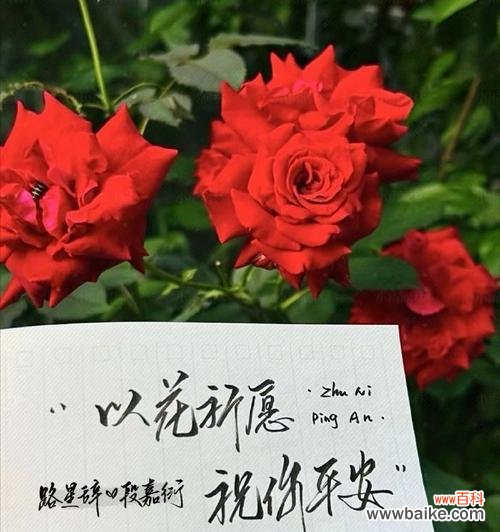 “以花祈愿
·Zhu Ni
Ping An·
路星辞♡段嘉衍
祝你平安”
www百科
www.baike.com